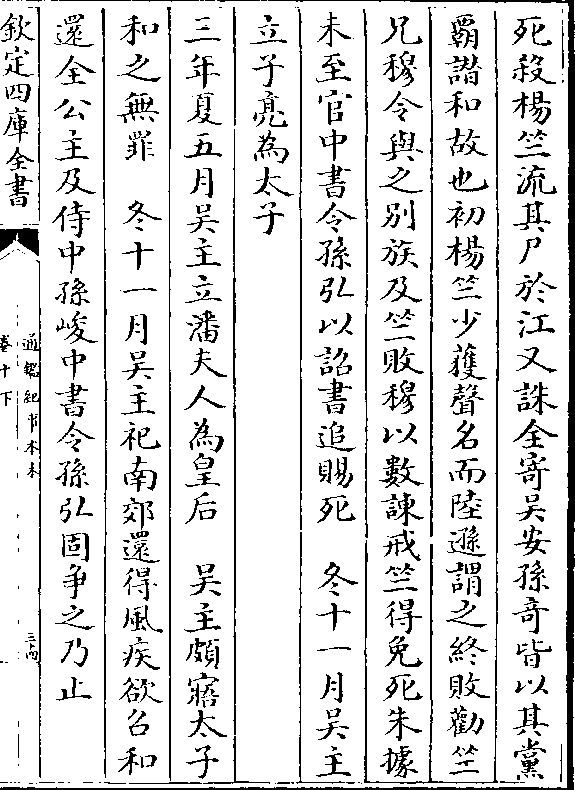 死殺楊竺流其尸於江又誅全寄吳安孫奇皆以其黨
霸譖和故也初楊竺少獲聲名而陸遜謂之終敗勸竺
兄穆令與之別族及竺敗穆以數諫戒竺得免死朱據
未至官中書令孫弘以詔書追賜死　冬十一月吳主
立子亮為太子
三年夏五月吳主立潘夫人為皇后　吳主頗寤太子
和之無罪　冬十一月吳主祀南郊還得風疾欲召和
還全公主及侍中孫峻中書令孫弘固爭之乃止
欽定四庫全書
通鑑紀事本末
卷十下
三十四